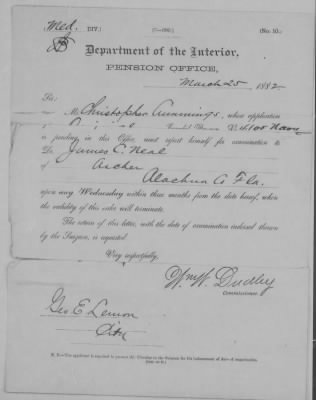 Med. DIV.) (No. 10.)
Department of the Interior,
PENSION OFFICE,
March 25 1882
Sir:
Mr. Christopher Cummings, whose application
Navy
is pending in this Office, must report himself for examination to
Dr. James C. Neal
of Archer
Alachua Co Fla.
upon any Wednesday within three months from the date hereof, when
the validity of this order will terminate.
The return of this letter, with the date of examination indorsed thereon
by the Surgeon, is requested.
Very respectfully,
Wm W. Dudley
Commissioner.
Geo E Lemon
City